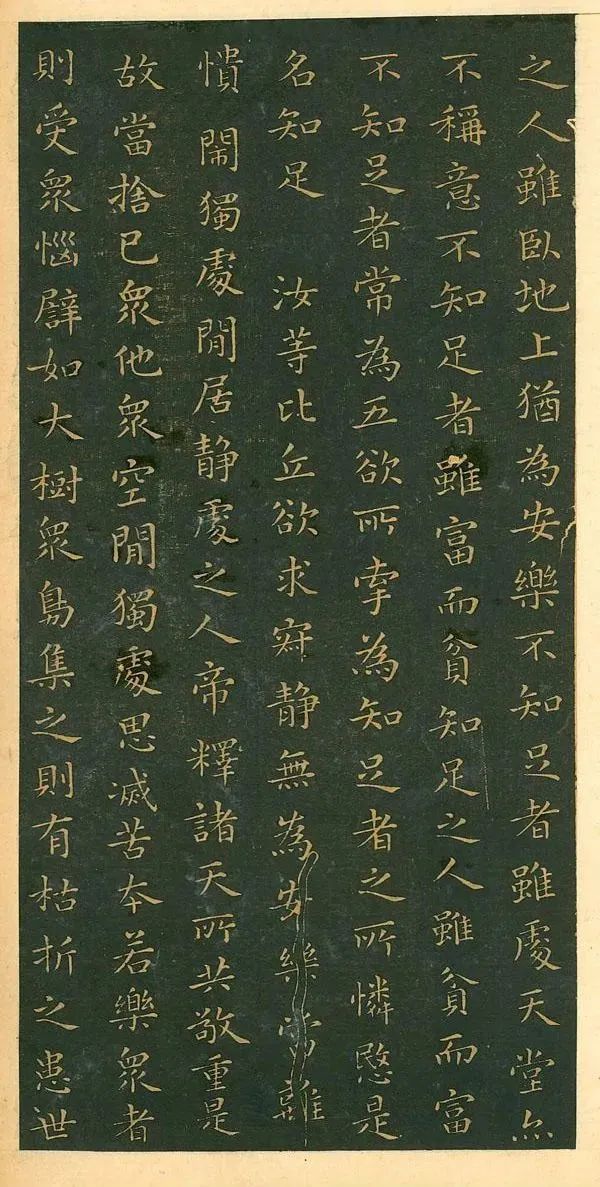 之人雖臥地上猶為安樂不知足者雖處天堂亦
不稱意不知足者雖富而貧知足之人雖貧而富
不知足者常為五欲所牽為知足者之所憐愍是
名知足　汝等比丘欲求寂静無為安樂當離
憒閙獨處閒居静處之人帝釋諸天所共敬重是
故當捨己眾他眾空閒獨處思滅苦本若樂眾者
則受眾惱譬如大樹眾鳥集之則有枯折之患世